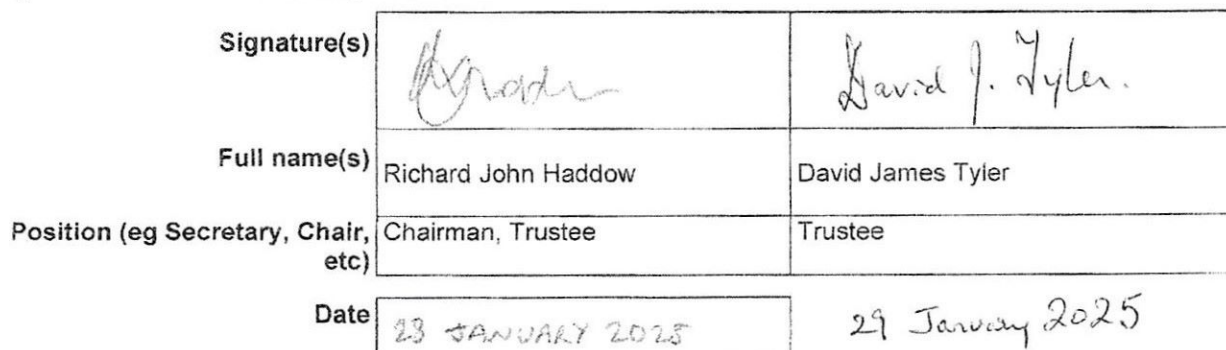 Signature(s) David J. Tyler.
Full name(s) Richard John Haddow David James Tyler
Position (eg Secretary, Chair, etc) Chairman, Trustee Trustee
Date 23 JANUARY 2025 29 January 2025